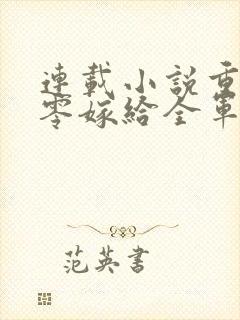 連載小說重
零嫁給全軍
范英書